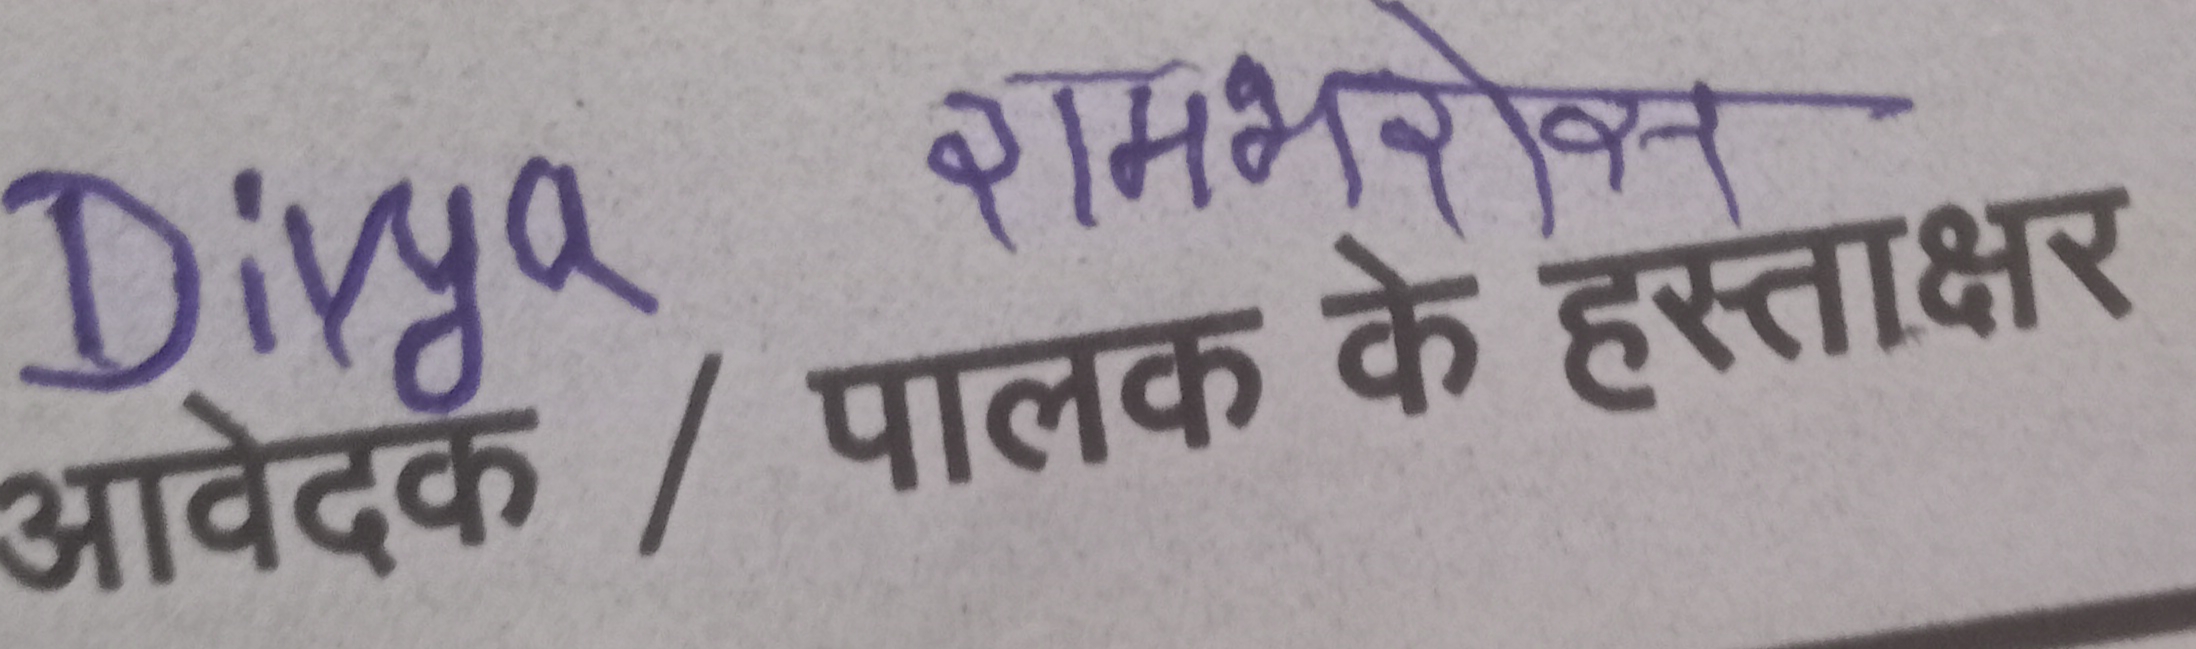 Divya रामभरोवन
आवेदक / पालक के हस्ताक्षर